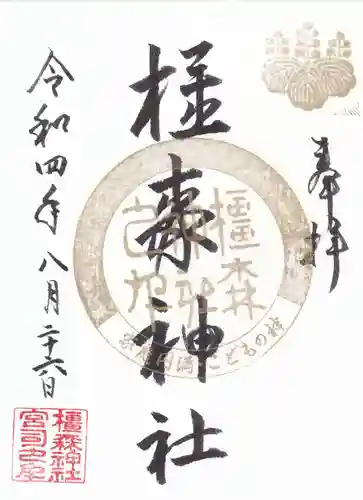 奉拝
橿森神社
円満 こどもの神
令和四年八月二十六日
橿森神社
宮司之印